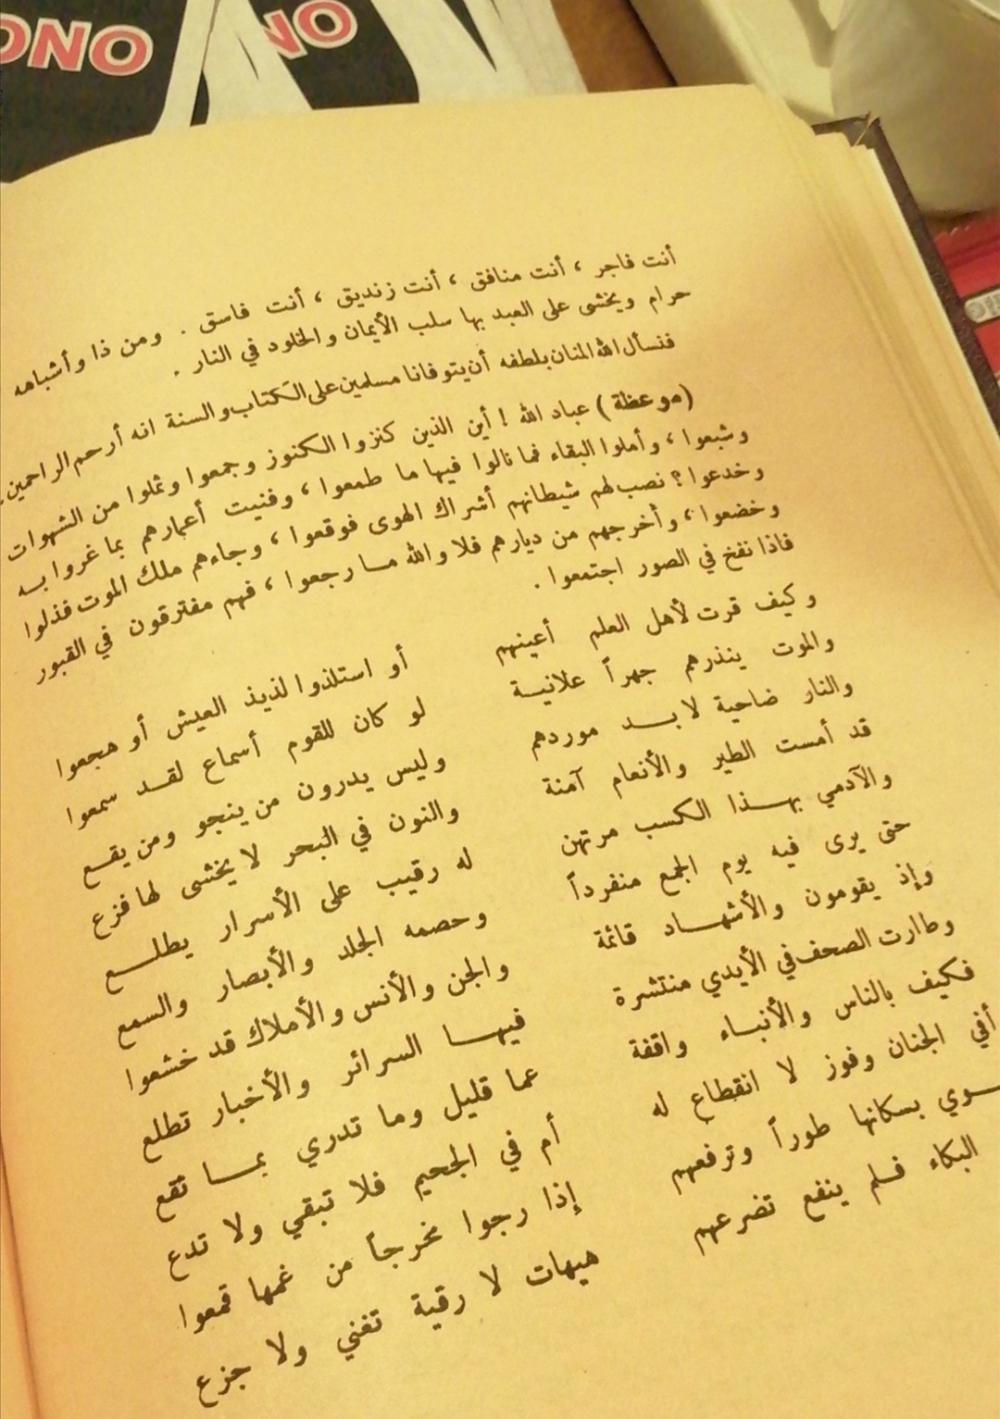 ONO
NO
أنت فاجر ، أنت منافق ، أنت زنديق ، أنت فاسق . ومن ذا وأشباهه
حرام ويخشى على العبد بها سلب الأيمان والخلود في النار .
فنسأل الله المنان بلطفه أن يتوفانا مسلمين على الكتاب والسنة انه أرحم الراحمين
(موعظة) عباد الله ! أين الذين كنزوا الكنوز وجمعوا وثملوا من الشهوات
وشبعوا ، وأملوا البقاء فما نالوا فيها ما طمعوا ، وفنيت أعمارهم بما غروا به
وخدعوا ؟ نصب لهم شيطانهم أشراك الهوى فوقعوا ، وجاءهم ملك الموت فذلوا
وخضعوا ، وأخرجهم من ديارهم فلا والله ما رجعوا ، فهم مفترقون في القبور
فاذا نفخ في الصور اجتمعوا .
وكيف قرت لأهل العلم أعينهم أو استلذوا لذيذ العيش أو هجعوا
والموت ينذرهم جهراً علانية لو كان للقوم أسماع لقد سمعوا
والنار ضاحية لا بد موردهم وليس يدرون من ينجو ومن يقع
قد أمست الطير والأنعام آمنة والنون في البحر لا يخشى لها فزع
والآدمي بهذا الكسب مرتهن له رقيب على الأسرار يطلع
حتى يرى فيه يوم الجمع منفرداً وخصمه الجلد والأبصار والسمع
وإذ يقومون والأشهاد قائمة والجن والأنس والأملاك قد خشعوا
وطارت الصحف في الأيدي منتشرة فيها السرائر والأخبار تطلع
فكيف بالناس والأنباء واقفة عما قليل وما تدري بما تقع
أفي الجنان وفوز لا انقطاع له أم في الجحيم فلا تبقي ولا تدع
وي بسكانها طوراً وترفعهم إذا رجوا مخرجاً من غمها قمعوا
البكاء فلم ينفع تضرعهم هيهات لا رقية تغني ولا جزع